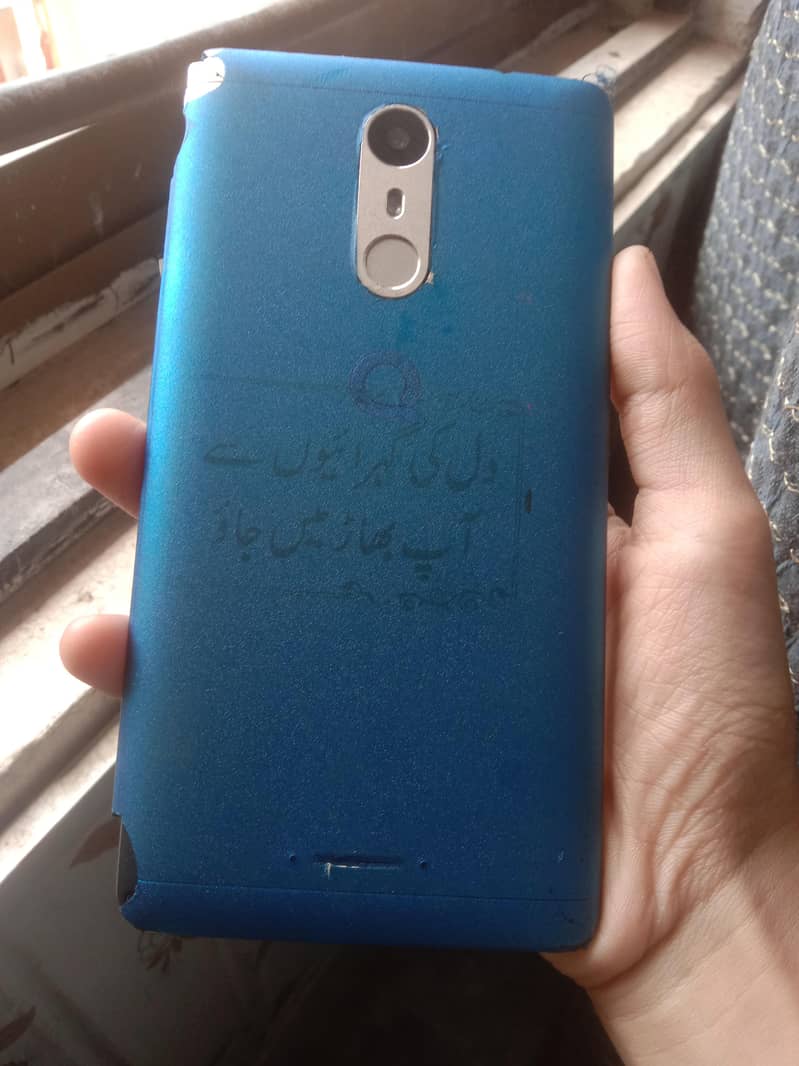 دل کی گہرائیوں سے
آپ بھاڑ میں جاؤ